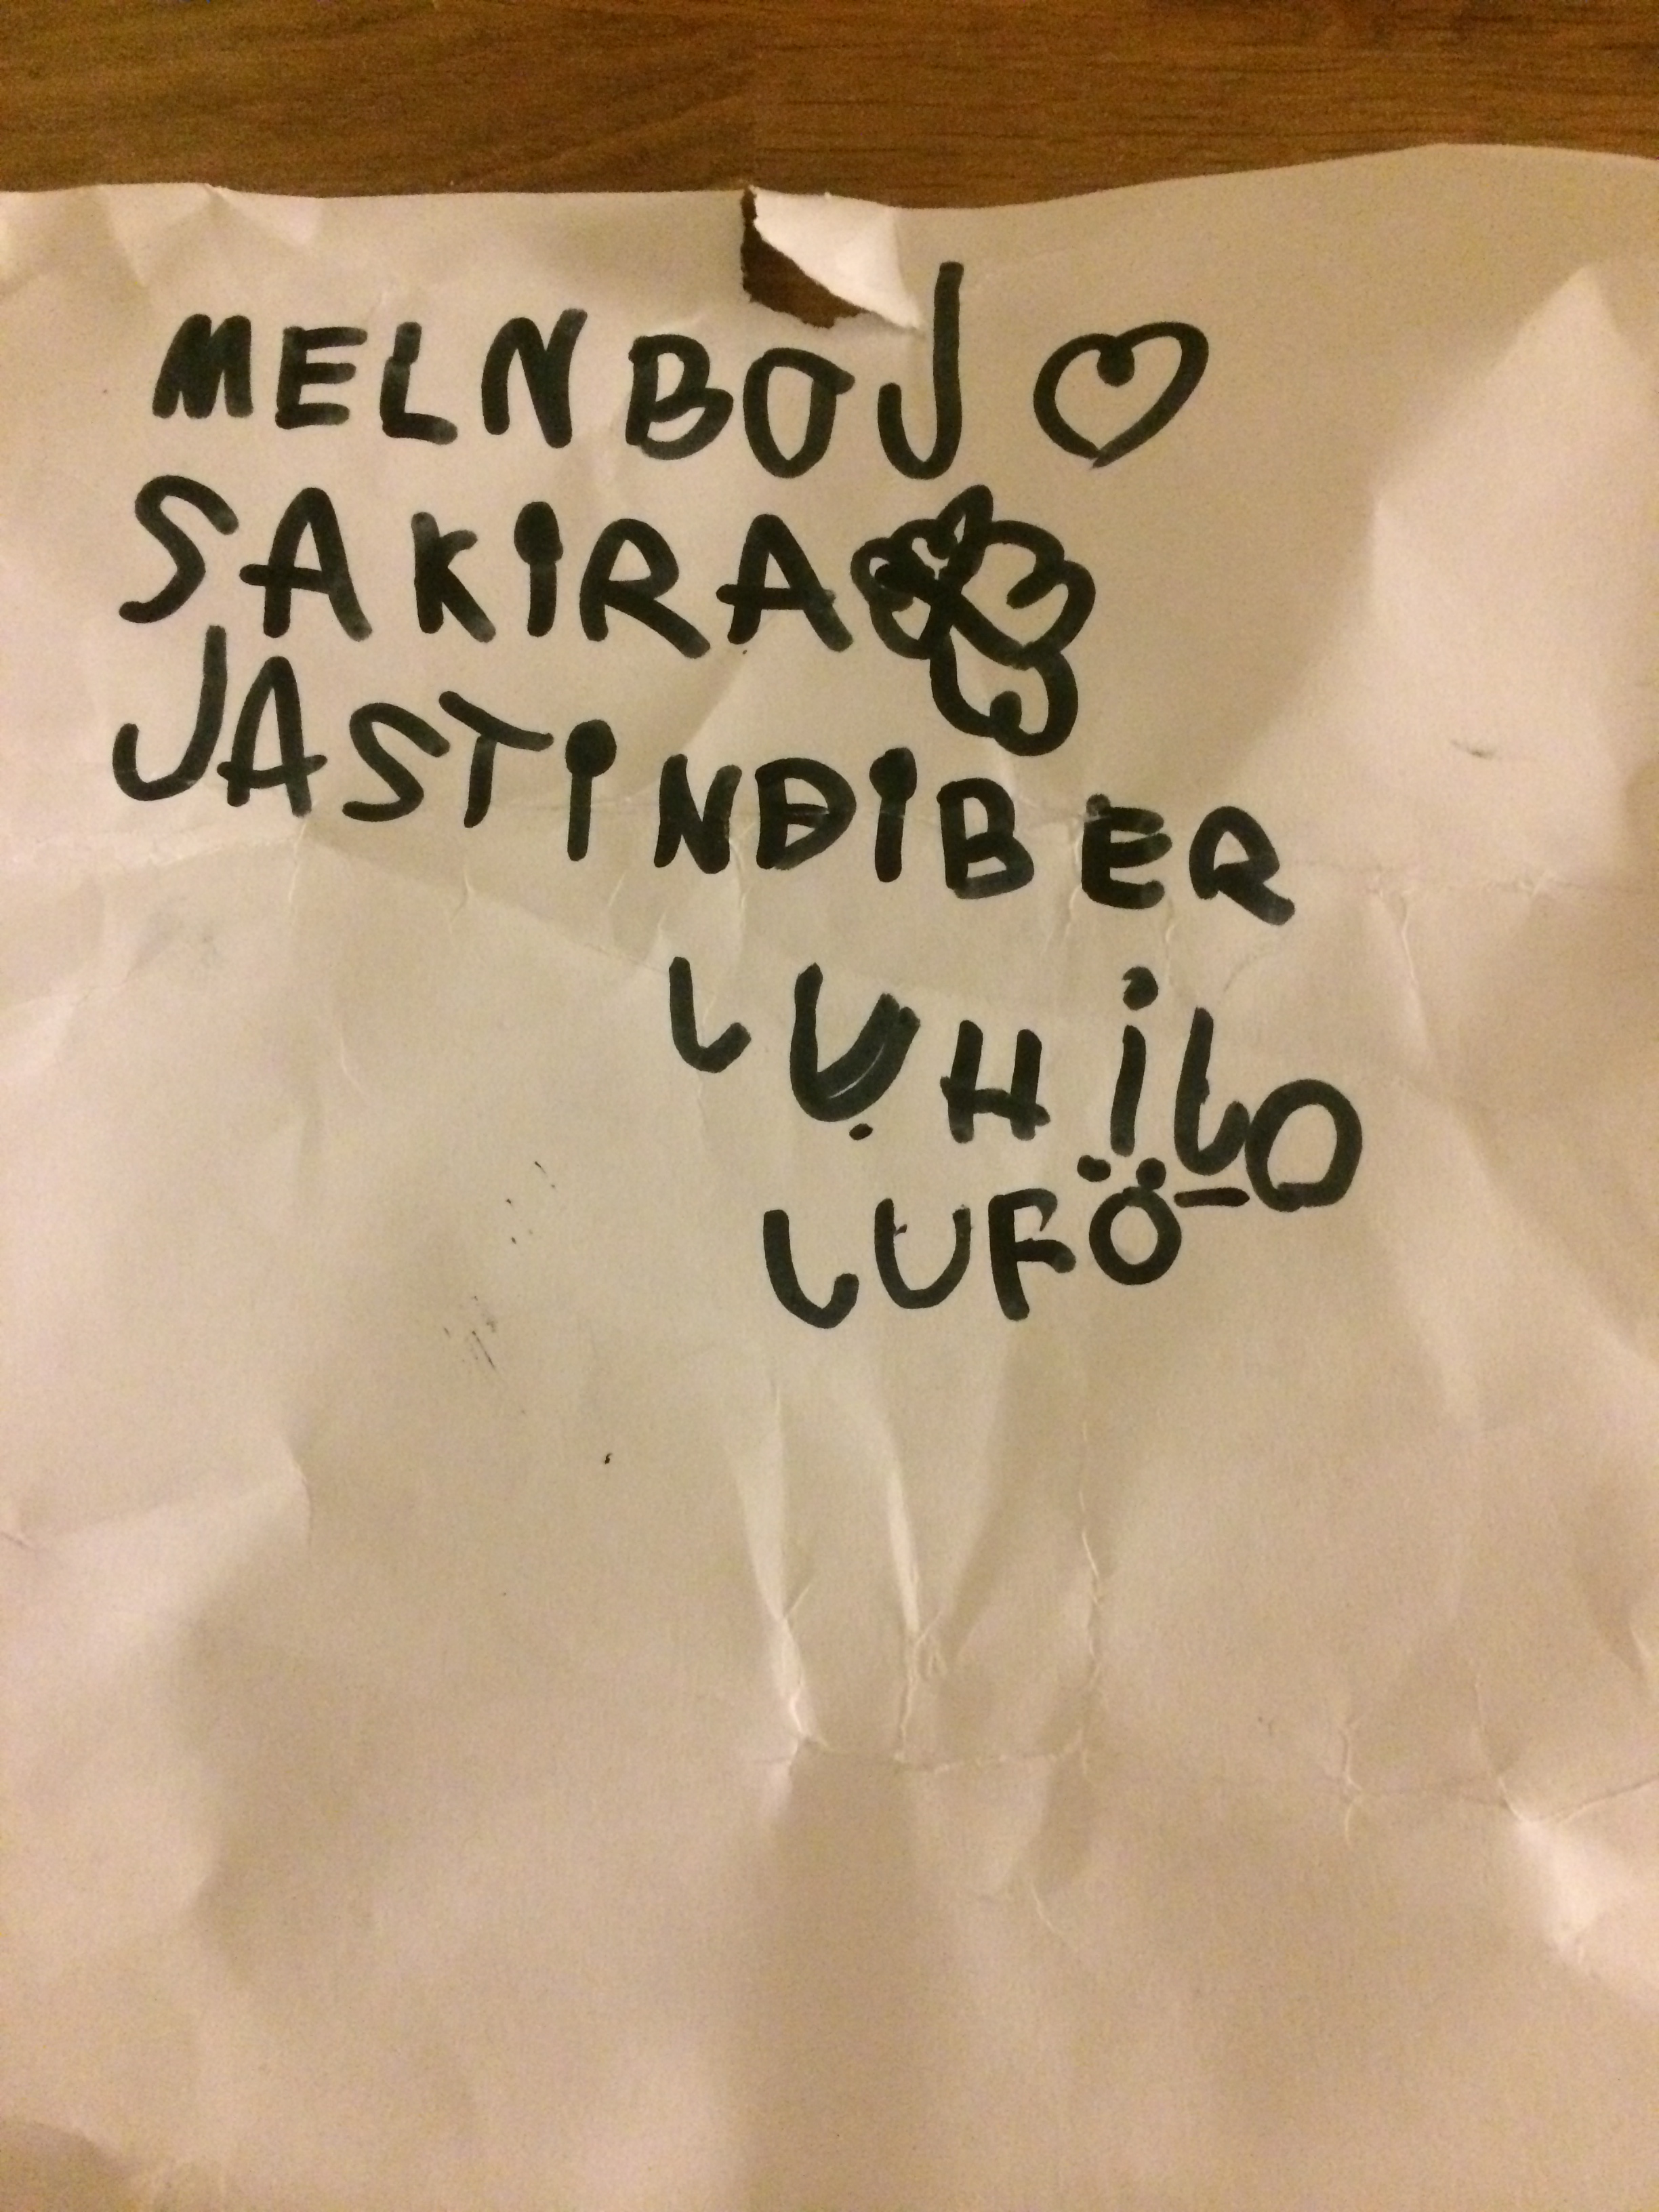 MELNBOJ ♡
SAKIRA
JASTINDIBER
LUHILO
LUFÖ